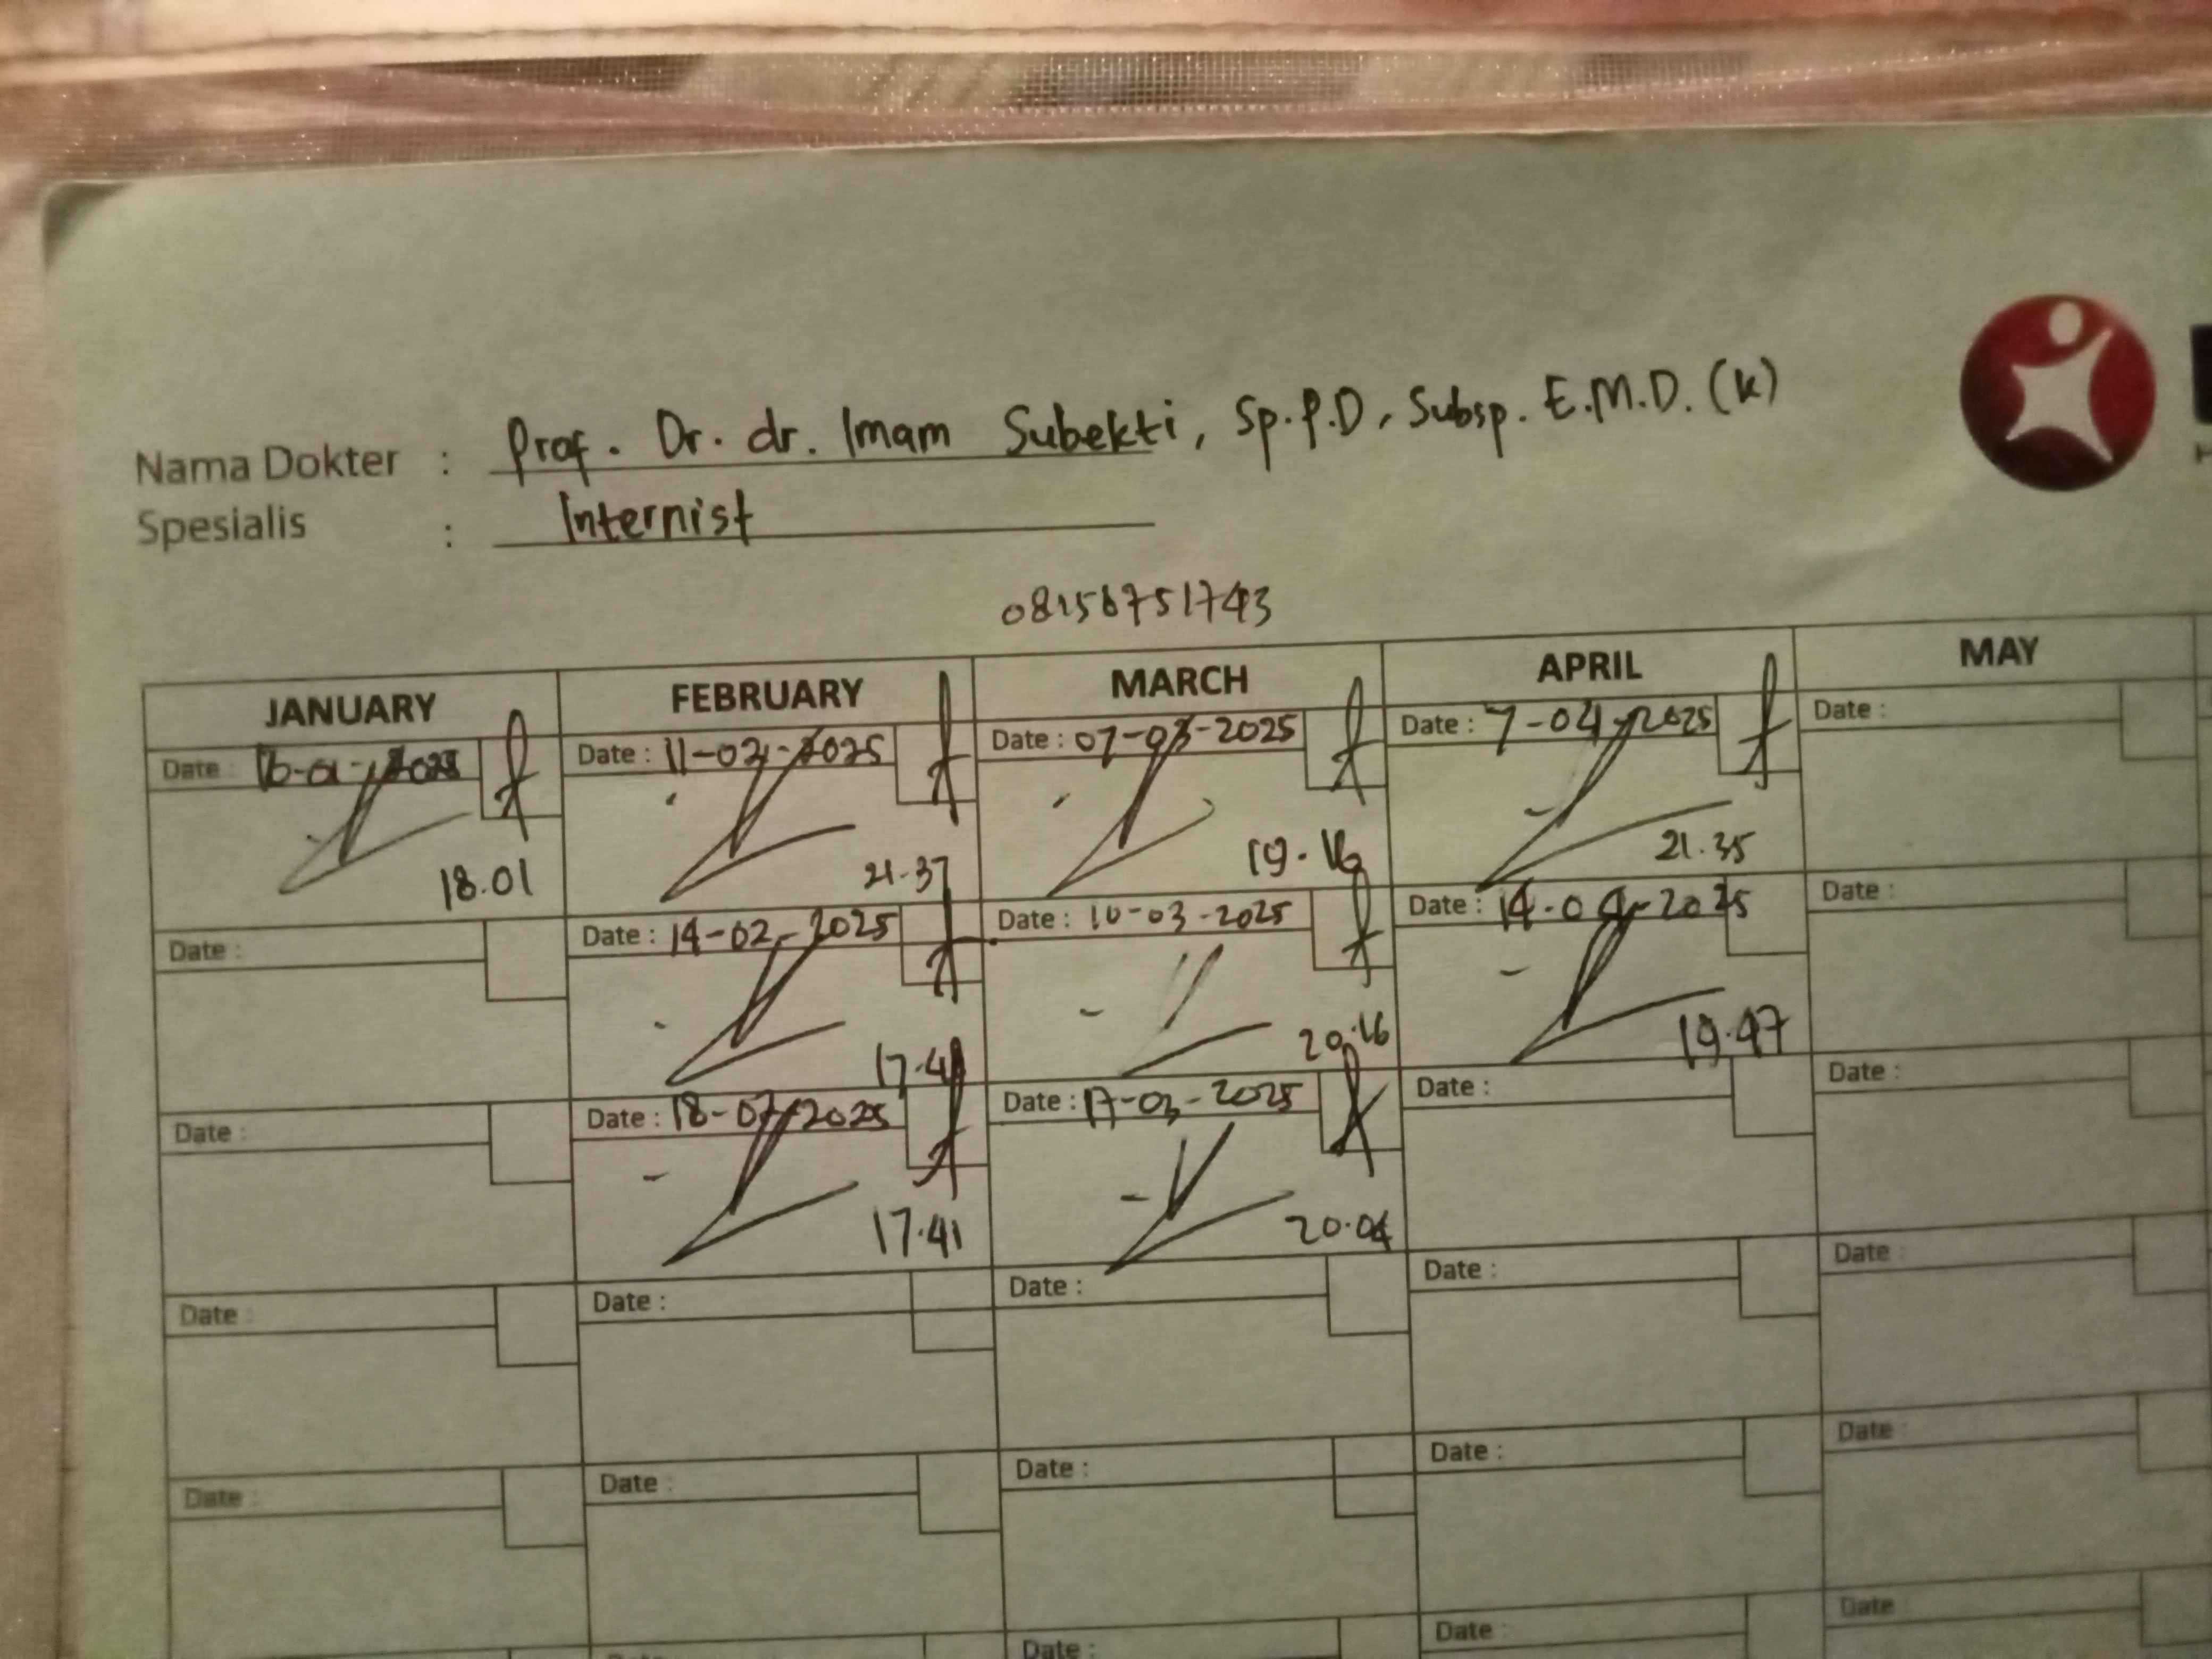 Nama Dokter : Prof. Dr. dr. Imam Subekti, Sp.P.D, Subsp. E.M.D. (K)
Spesialis : Internist
081567751743
JANUARY FEBRUARY MARCH APRIL MAY
Date : Date : 11-02-2025 Date : 07-03-2025 Date : 7-04-2025 Date :
18.01 21.37 19.16 21.35
Date : Date : 14-02-2025 Date : 10-03-2025 Date : 14-04-2025 Date :
17.41 20.16 19.47
Date : Date : 18-02-2025 Date : 17-03-2025 Date : Date :
17.41 20.04
Date : Date : Date : Date : Date :
Date : Date : Date : Date : Date :
Date : Date : Date